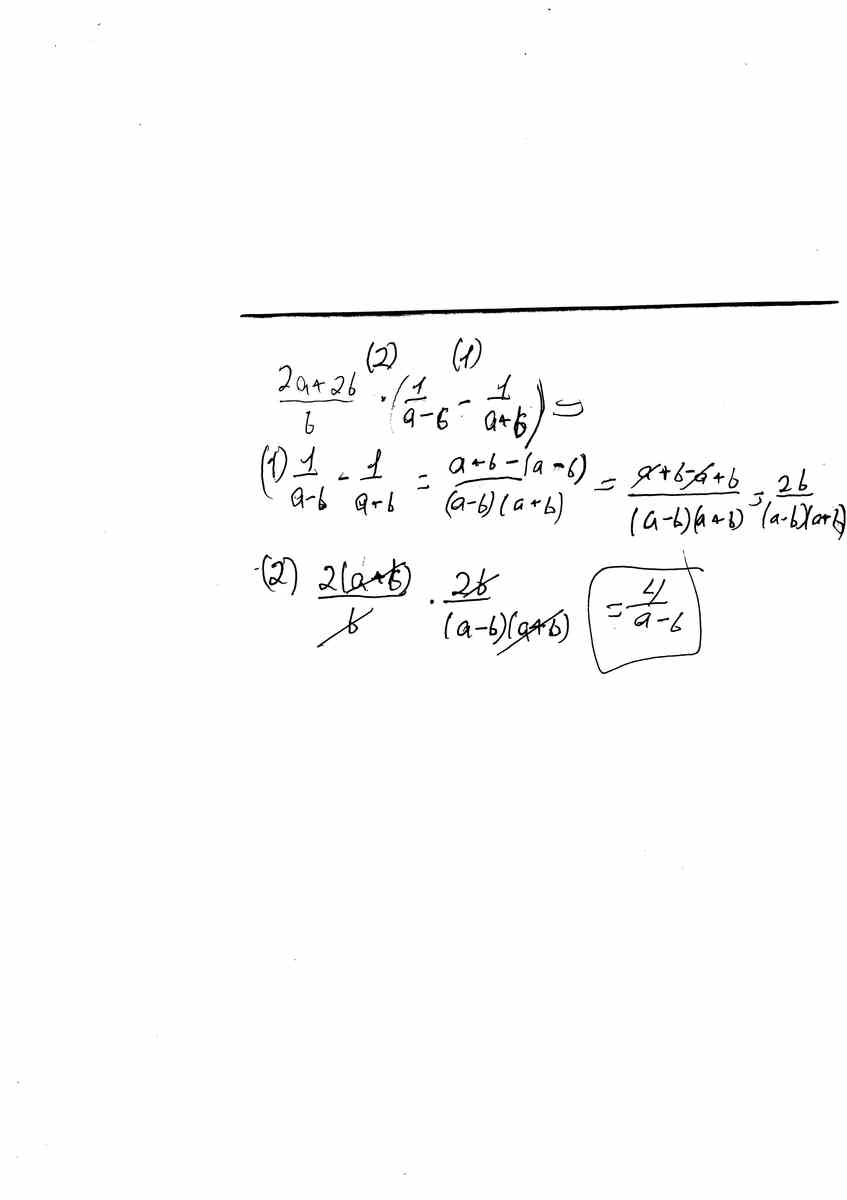 (2) (1)
(2a+2b)/b · (1/(a-b) - 1/(a+b)) =
(1) 1/(a-b) - 1/(a+b) = (a+b-(a-b))/((a-b)(a+b)) = (a+b-a+b)/((a-b)(a+b)) = 2b/((a-b)(a+b))
(2) 2(a+b)/b · 2b/((a-b)(a+b)) = 4/(a-b)